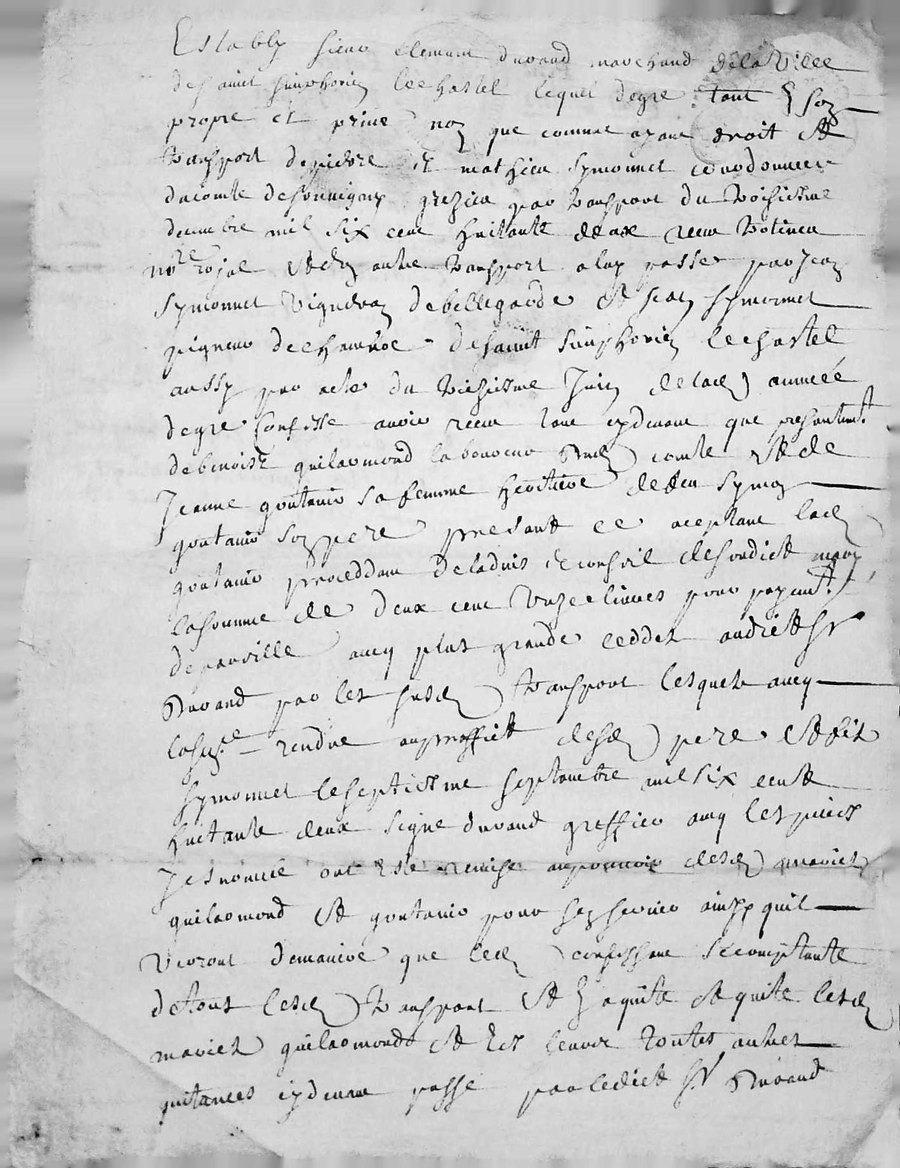 Estably sieur clement durand marchand dela Ville
de saint simphorien lechastel lequel degre tant E son
propre et prive non que comme ayant droit et
transport de pierre et mathieu symonnet courdonnier
du comte deforetz grezieu par transport du troisiesme
decembre mil six cent huitante deux receu
nore royal et dun autre transport a luy passé par Jean
symonnet Vigneron de bellegarde et Jean symonnet
pigneur de chanvre de saint simphorien lechastel
aussy par acte du viesiesme Juin de lad annee
degre confesse avoir receu tant cydevant que presantemt
de benoist guilaomond laboureur aud comte et de
Jeanne goutanio sa femme heritiere de feu symon
goutanio son pere presant et aceptant lad
goutanio proceddant de laduis et conseil desondict mary
lasomme de deux cent unze livres pour payemt
de pareille avec plus grande cedde audict sr
durand par les susd transport lesquels avec
la susd rendue auproffict desd pere et fils
symonnet le septiesme septambre mil six cents
huitante deux signe durand greffier avec les pieces
y esnoncé ont esté remise aupouvoir desd mariés
guilaomond et goutanio pour sen servir ainsy quil
verront demaniere que led confessant se contante
de tous lesd transport et en aquitte et quite lesd
mariés guilaomond et sur leurs toutes autres
quitances cydevant passé par ledict sr durand